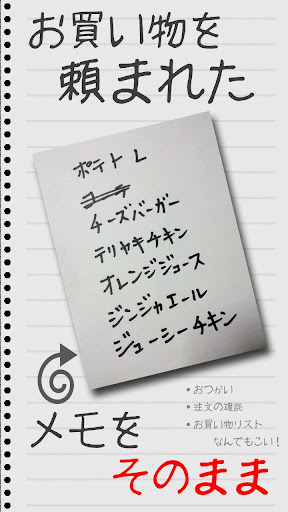 お買い物を
頼まれた
ポテト L
チーズバーガー
テリヤキチキン
オレンジジュース
ジンジャエール
ジューシーチキン
・おつかい
・注文の確認
・お買い物リスト
なんでもこい！
メモを
そのまま